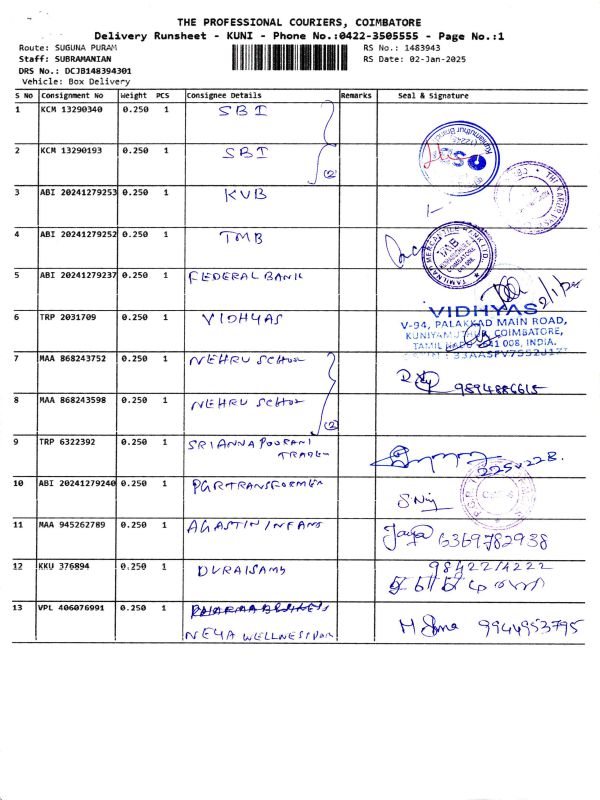 THE PROFESSIONAL COURIERS, COIMBATORE
Delivery Runsheet - KUNI - Phone No.:0422-3505555 - Page No.:1
Route: SUGUNA PURAM
RS No.: 1483943
Staff: SUBRAMANIAN
RS Date: 02-Jan-2025
DRS No.: DCJB148394301
Vehicle: Box Delivery
S No Consignment No Weight PCS Consignee Details Remarks Seal & Signature
1 KCM 13290340 0.250 1 SBI
2 KCM 13290193 0.250 1 SBI (2)
3 ABI 20241279253 0.250 1 KVB
4 ABI 20241279252 0.250 1 TMB
TAMILNAD MERCANTILE BANK LTD.
TMB
5 ABI 20241279237 0.250 1 FEDERAL BANK
2/1/25
6 TRP 2031709 0.250 1 VIDHYAS
VIDHYAS
V-94, PALAKKAD MAIN ROAD,
KUNIYAMUTHUR, COIMBATORE,
TAMIL NADU - 641 008, INDIA.
7 MAA 868243752 0.250 1 NEHRU SCHOOL
9894886615
8 MAA 868243598 0.250 1 NEHRU SCHOOL (2)
9 TRP 6322392 0.250 1 SRI ANNAPOORANI
TRADER
10 ABI 20241279240 0.250 1 PGR TRANSFORMER
11 MAA 945262789 0.250 1 AGASTIN INFANS
Jaya 6369782938
12 KKU 376894 0.250 1 DURAISAMY
9842274222
13 VPL 406076991 0.250 1
NEYA WELLNESS
9944953795